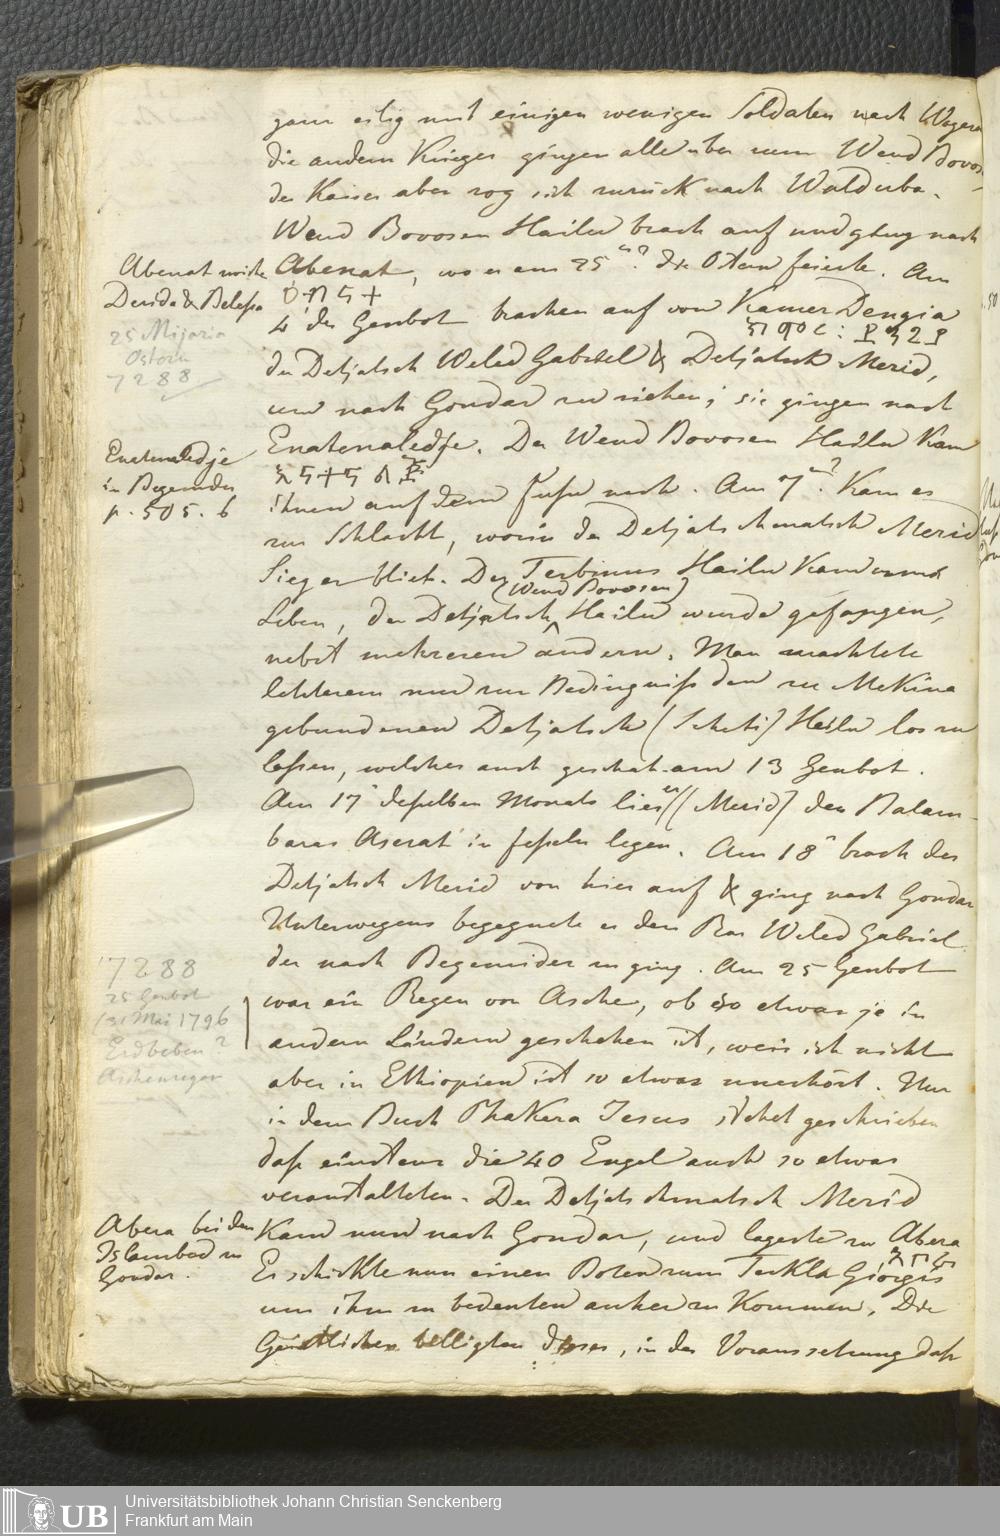 ganz eilig mit einigen wenigen Soldaten nach Wogera
die andern Krieger gingen alle über zum Wend Bovos-
der Kaiser aber zog sich zurück nach Walduba.
Wend Bovosen Hailu brach auf und ging nach
Abenat, wo er am 25n? die Ostern feierte. Am
4 des Genbot brachen auf von Kamer Dengia
der Detjatsch Weled Gabriel & Detjatsch Merid,
um nach Gondar zu ziehen; sie gingen nach
Enatenaledje. Der Wend Bovosen Hailu kam
እናተናለጅ
ihnen auf dem Fuße nach. Am 7n? kam es
zur Schlacht, worin der Detjatschmatsch Merid
Sieger blieb. Der Terbinus Hailu kam ums
(Wend Bovosen)
Leben, der Detjatsch Hailu wurde gefangen,
nebst mehreren andern. Man machte
letzterem nun zur Bedingniß den zu Mekina
gebundenen Detjatsch (Scheti) Hailu los zu
laßen, welches auch geschah am 13 Genbot.
Am 17n deßelben Monats lies er (Merid) den Balam-
baras Aserat in Feßeln legen. Am 18n brach der
Detjatsch Merid von hier auf & ging nach Gondar
Unterwegens begegnete er den Ras Weled Gabriel
der nach Begemider zu ging. Am 25 Genbot
war ein Regen von Asche, ob so etwas je in
andern Ländern geschehen ist, weis ich nicht
aber in Ethiopien ist so etwas unerhört. Nur
in dem Buch Phakera Jesus stehet geschrieben
daß einstens die 40 Engel auch so etwas
veranstalteten. Der Detjatschmatsch Merid
kam nun nach Gondar, und lagerte zu Abera
Er schickte nun einen Boten zum Teckla Giorgis
um ihm zu bedeuten anher zu kommen, Die
Geistlichen billigten dieses, in der Voraussetzung daß
Abenat zwischen
Derida & Belessa
25 Mijazia
Ostern
7288
Enatenaledje
in Begemder
p. 505. b
7288
25 Genbot
(31 Mai 1796
Erdbeben?
Aschenregen
Abera bei dem
Islambed zu
Gondar.
UB
Universitätsbibliothek Johann Christian Senckenberg
Frankfurt am Main